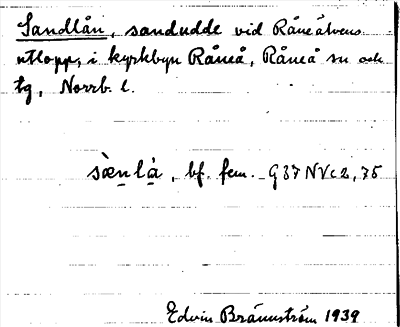 Sandlån, sandudde vid Råneälvens
utlopp, i kyrkbyn Råneå, Råneå sn och
tg, Norrb. l.
sæ̀nlå̀, bf. fem. G 37 NVc2, 75
Edvin Brännström 1939